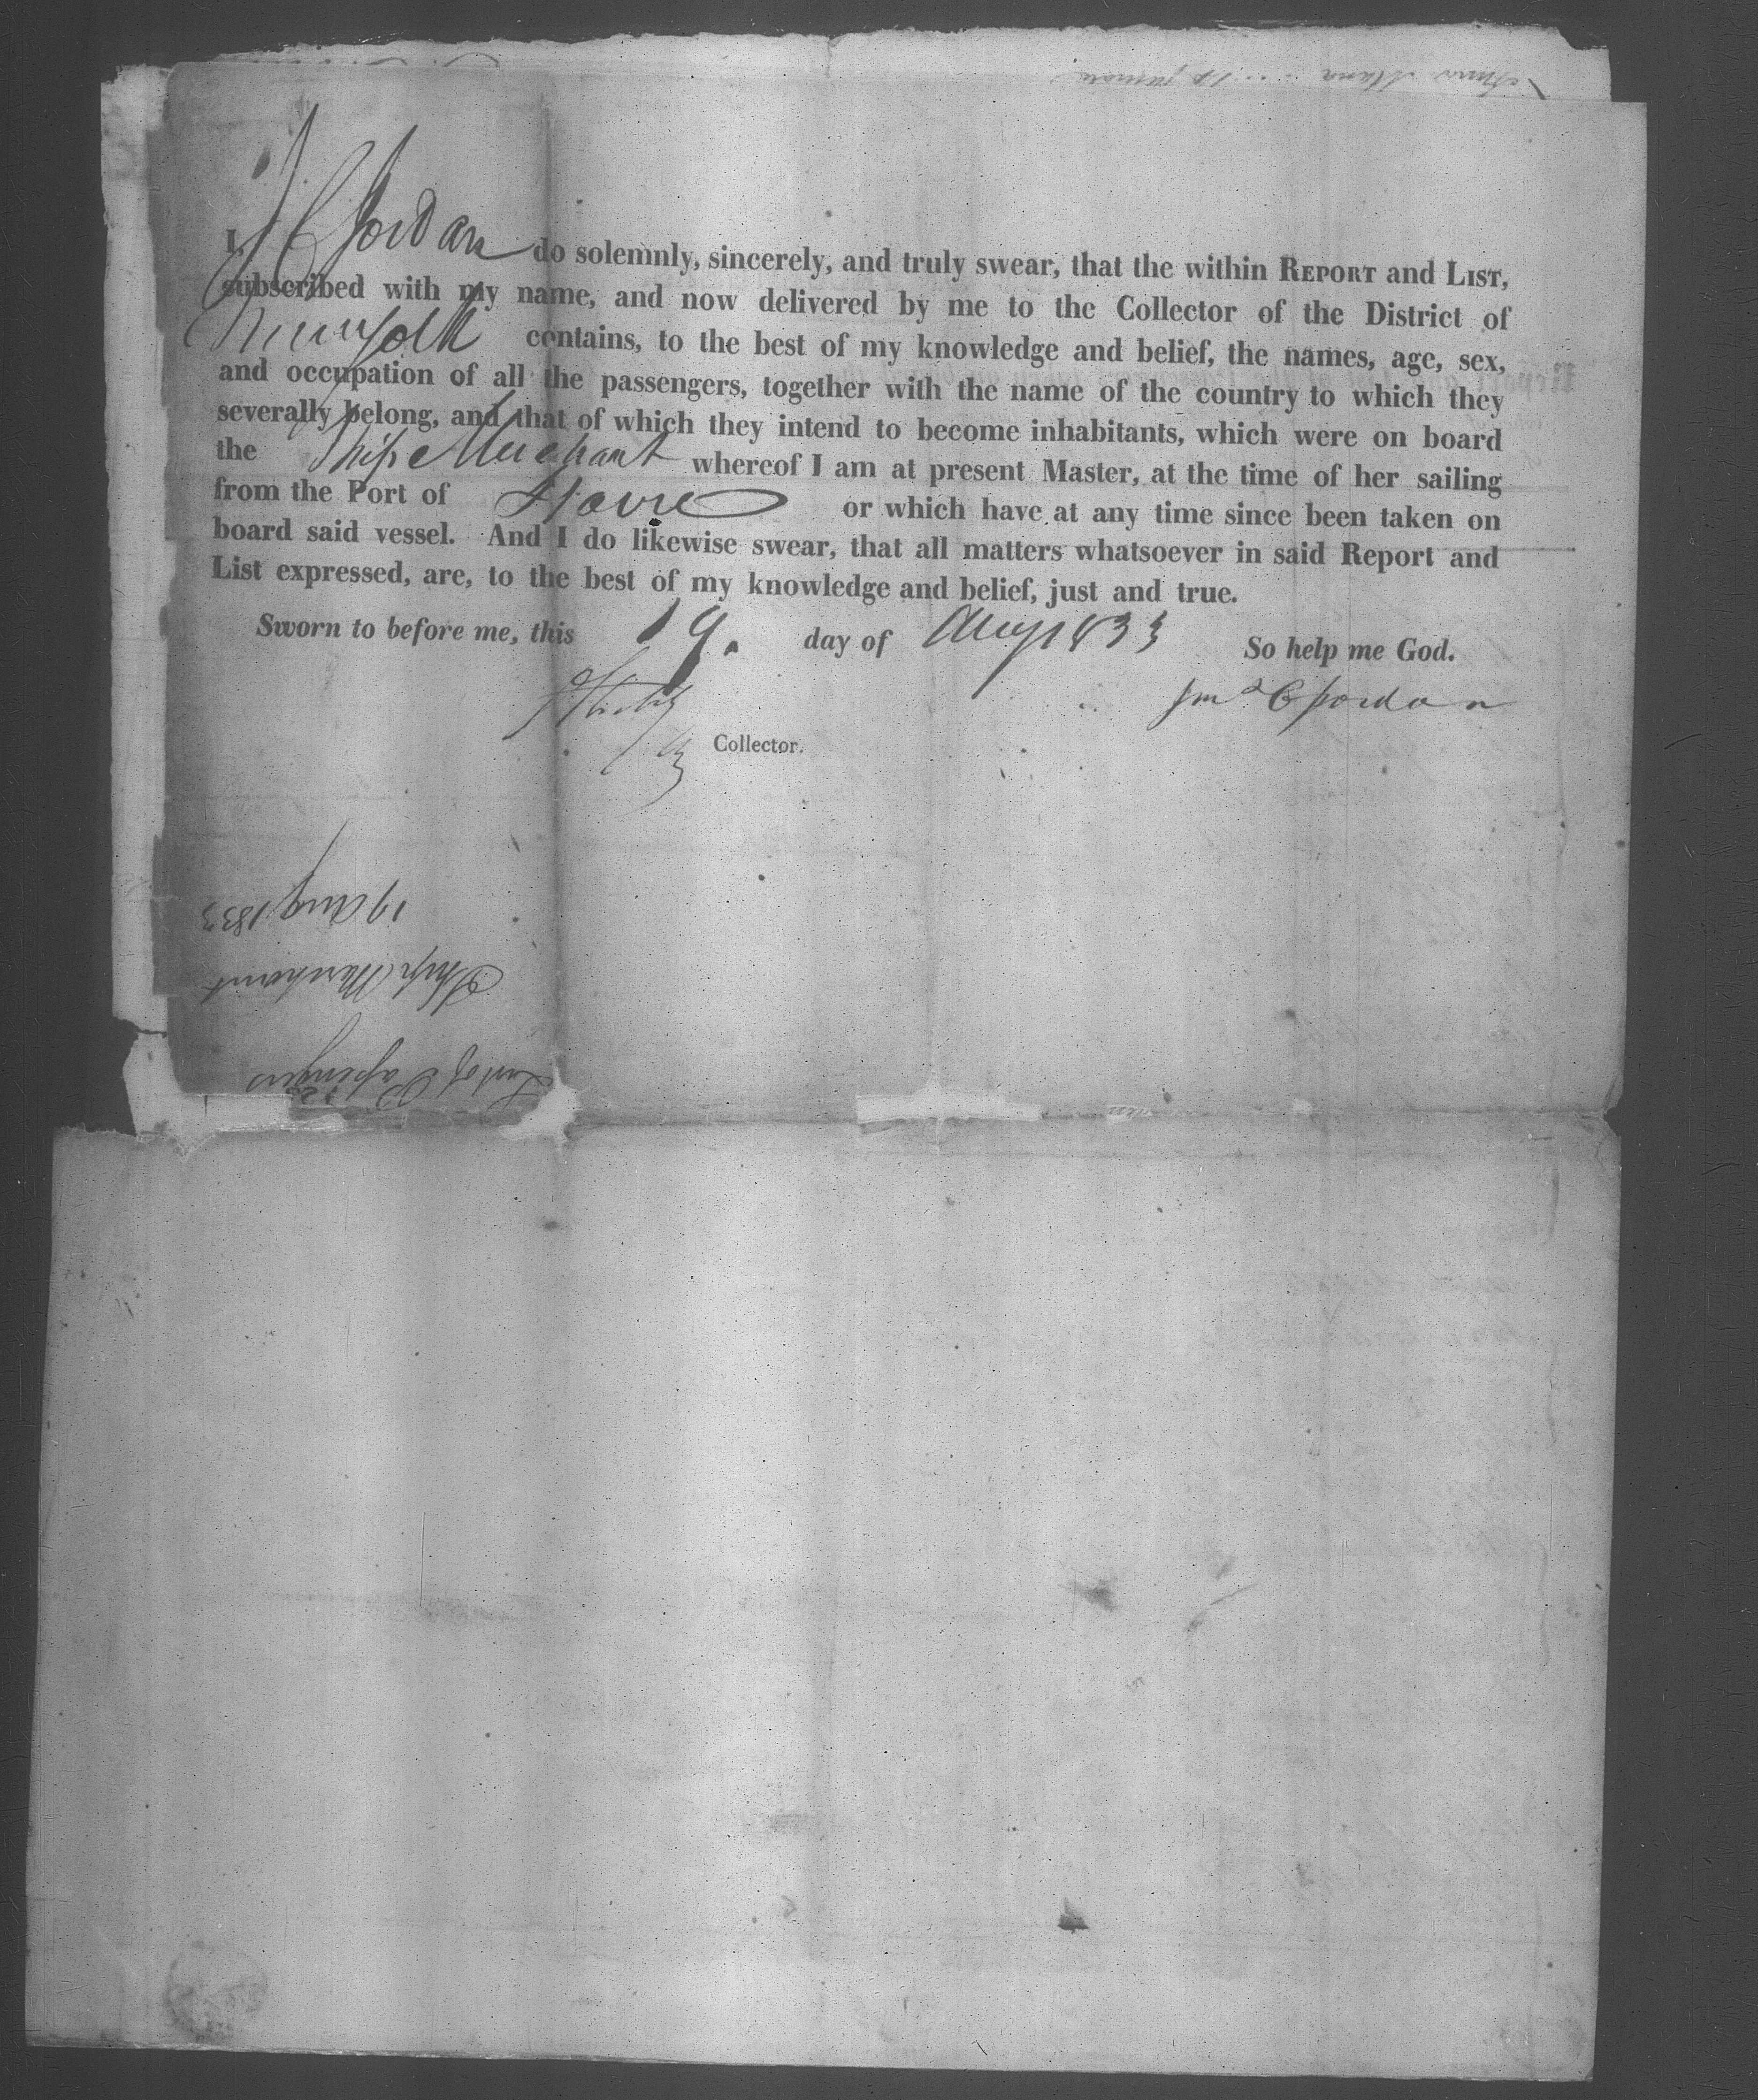 I, J C Jordan do solemnly, sincerely, and truly swear, that the within REPORT and LIST,
subscribed with my name, and now delivered by me to the Collector of the District of
New York contains, to the best of my knowledge and belief, the names, age, sex,
and occupation of all the passengers, together with the name of the country to which they
severally belong, and that of which they intend to become inhabitants, which were on board
the Ship Merchant whereof I am at present Master, at the time of her sailing
from the Port of Havre or which have at any time since been taken on
board said vessel. And I do likewise swear, that all matters whatsoever in said Report and
List expressed, are, to the best of my knowledge and belief, just and true.
Sworn to before me, this 19. day of Aug 1833 So help me God.
C Jordan
Collector.
List of Passengers
Ship Merchant
19 Aug 1833